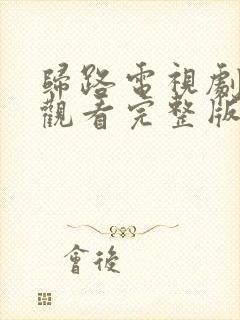 歸路電視劇
觀看完整版
會後